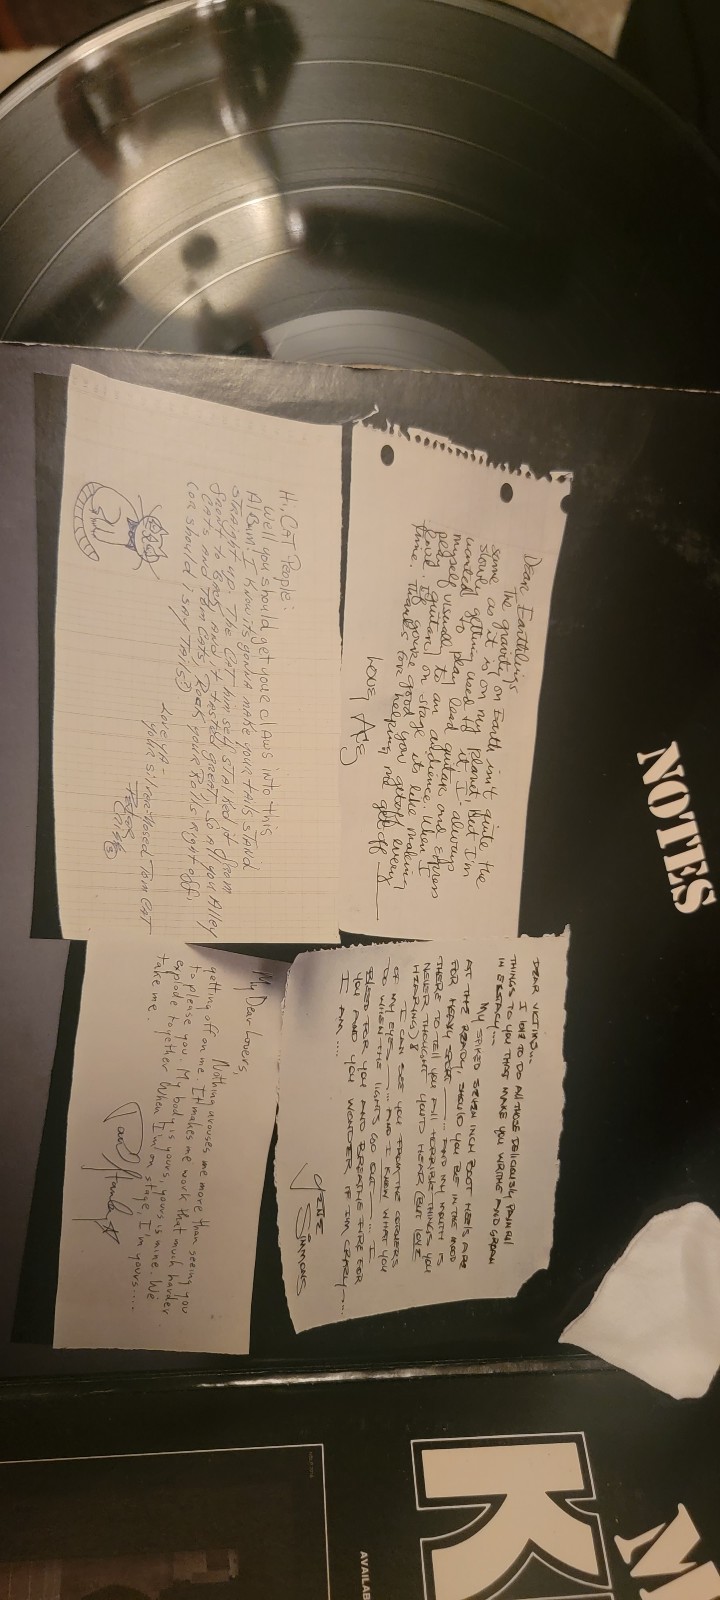 NOTES
Dear Earthlings
The gravity on Earth isn't quite the
same as it is on my planet, but I'm
slowly getting used to it. I always
wanted to play lead guitar and express
myself visually to an audience. When I
play guitar on stage its like making
love. If you're good you get off every
time. Thanks for helping me get off
LOVE, Ace
Hi, CAT People:
Well you should get your claws into this
Album. I know its gonna make your tails stand
straight up. The Cat him self stalked it from
front to back and it tested great. So all you Alley
CATS and Tom Cats, Rock your Rolls Right off,
(or should I say TAILS?)
Love YA -
your silver-nosed Tom CAT
Peter
Criss
DEAR VICTIMS...
I LOVE TO DO ALL THOSE DELICIOUSLY PAINFUL
THINGS TO YOU THAT MAKE YOU WRITHE AND GROAN
IN ECSTACY...
MY SPIKED SEVEN INCH BOOT HEELS ARE
AT THE READY, SHOULD YOU BE IN THE MOOD
FOR HEAVY SPORT... AND MY MOUTH IS
THERE TO TELL YOU ALL HORRIBLE THINGS YOU
NEVER THOUGHT YOU'D HEAR (BUT LOVE
HEARING)
I CAN SEE YOU FROM THE CORNERS
OF MY EYES... AND I KNOW WHAT YOU
DO WHEN THE LIGHTS GO OUT... I
BLEED FOR YOU AND BREATHE FIRE FOR
YOU AND YOU WONDER IF I'M CRAZY....
I AM....
GENE
SIMMONS
My Dear Lovers,
Nothing arouses me more than seeing you
getting off on me. It makes me work that much harder
to please you. My body is yours, yours is mine. We
explode together when I'm on stage, I'm yours....
take me.
Paul Stanley
K
AVAILAB